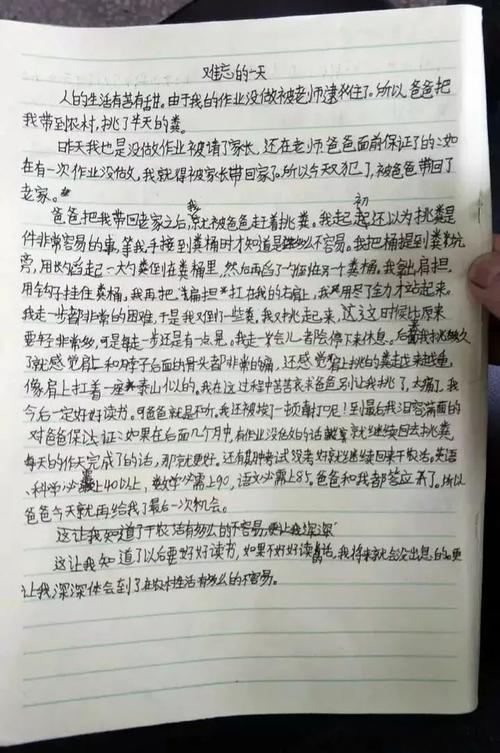 难忘的一天
人的生活有苦有甜。由于我的作业没做被老师逮住了。所以爸爸把
我带到农村，挑了半天的粪。
昨天我也是没做作业被请了家长，还在老师爸爸面前保证了的：如
在有一次作业没做，我就得被家长带回家了。所以今天又犯了，被爸爸带回了
老家。
爸爸把我带回老家之后，我就被爸爸赶着挑粪。我起初还以为挑粪是
件非常容易的事，等我手接到粪桶时才知道是多么不容易。我把桶提到粪坑
旁，用长勺舀起一大勺粪倒在粪桶里，然后再舀了勺倒在另一个粪桶。我拿出肩担，
用钩子挂住粪桶。我再把“扁担”扛在我的右肩上，我用尽了全力才站起来。
我走一步都非常的困难，于是我又倒了一些粪。我又挑起来，这这时候比原来
要轻非常多，可是每走一步还是有一点晃。我走一会儿者会停下来休息。后面我挑越久
了就感觉肩上和脖子后面的骨头都非常的痛，还感觉肩上挑的粪走来走越重，
像肩上扛着一座泰山似的。我在这过程中苦苦哀求爸爸别让我挑了，太痛了，我
今后一定好好读书。可爸爸就是不听，我还被挨了一顿毒打呢！到最后我泪容满面的
对爸爸保证：如果在后面几个月中，有作业没做的话就继续回去挑粪，
每天的作天完成了的话，那就更好。还有期中考试没考好就继续回来干农活。英语
、科学必需上40以上，数学必需上90，语文必需上85。爸爸和我都答应了。所以
爸爸今天就再给我了最后一次机会。
这让我知道了干农活有多么的不容易，更让我深深
这让我知道了以后要好好读书，如果不好好读书的话，我将来就会没出息的。更
让我深深体会到了在农村生活有多么的不容易。